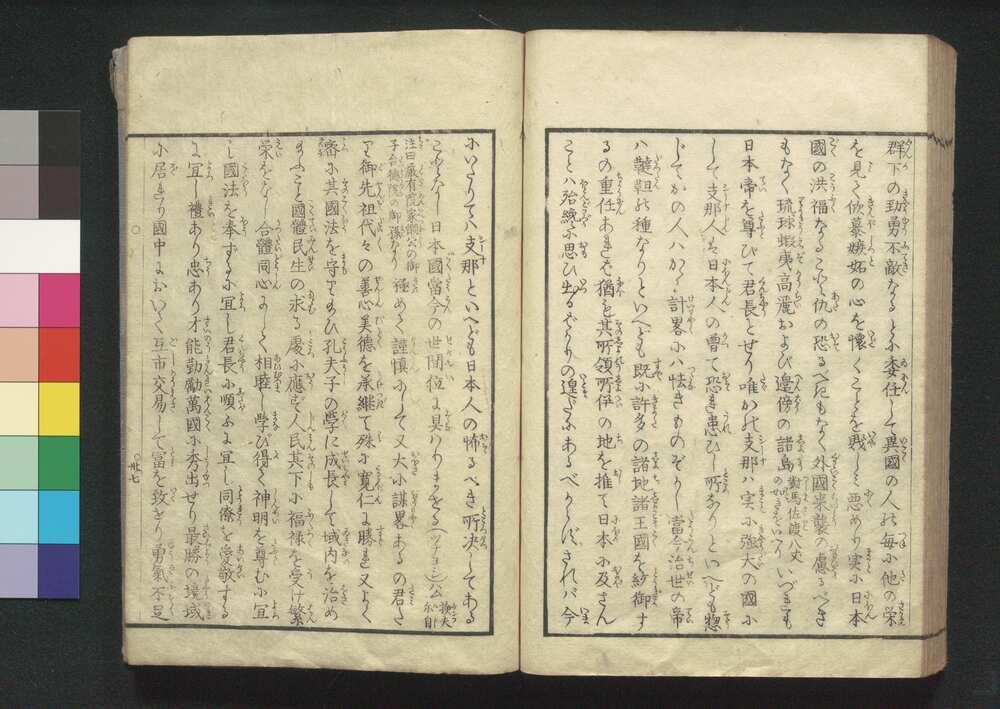 群下の勁勇不敵なるとに委任して異國の人の毎に他の栄
を見て欽慕嫉妬の心を懐くことを戝しミ悪めり実に日本
國の洪福なることハ仇の恐るべきもなく外國来襲の慮るべき
もなく琉球蝦夷高麗および邊傍の諸島對馬佐渡八丈のせきをいへりいづれも
日本帝を尊びて君長とせり唯かの支那ハ実に強大の國に
して支那人も日本人の曽て恐き患ひし所なりといへども惣
じてかの人ハかゝる計畧にハ怯きものぞかし當今治世の帝
ハ韃靼の種なりといへども既に許多の諸地諸王國を紛御す
るの重任あれバ猶も其所領所伊の地を推て日本に及さん
ことハ殆纔に思ひ出るばかりの遑だにあるべからじされバ今
にいたりてハ支那といへども日本人の怖るべき所決してある
ことなし日本國當今の世間位に具ハりまします
注曰嚴有院家綱公の御
子台徳院の御孫なり
極めて謹慎にして又大に謀畧あるの君た
り御先祖代々の善心美徳を承継て殊に寛仁に勝れ又よく
審に其國法を守り玉ひ孔夫子の學に成長して域内を治め
玉ふこと國體民生の求る處に應ず人民其下に福禄を受け繁
栄をなし合體同心にして相睦し學び得て神明を尊むに宜
し國法を奉ずるに宜し君長に順ふに宜し同僚を受敬する
に宜し禮あり忠あり才能勤勵萬國に秀出せり最勝の境域
に居れり國中において互市交易して富を致せり勇氣不足
〇卅七